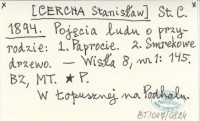 [CERCHA Stanisław] St. C.
1894. Pojęcia ludu o przy-
rodzie: 1. Paprocie. 2. Smrekowe
drzewo. — Wisła 8, nr 1: 145.
BZ, MT. ★ P.
W Łopusznej na Podhalu.